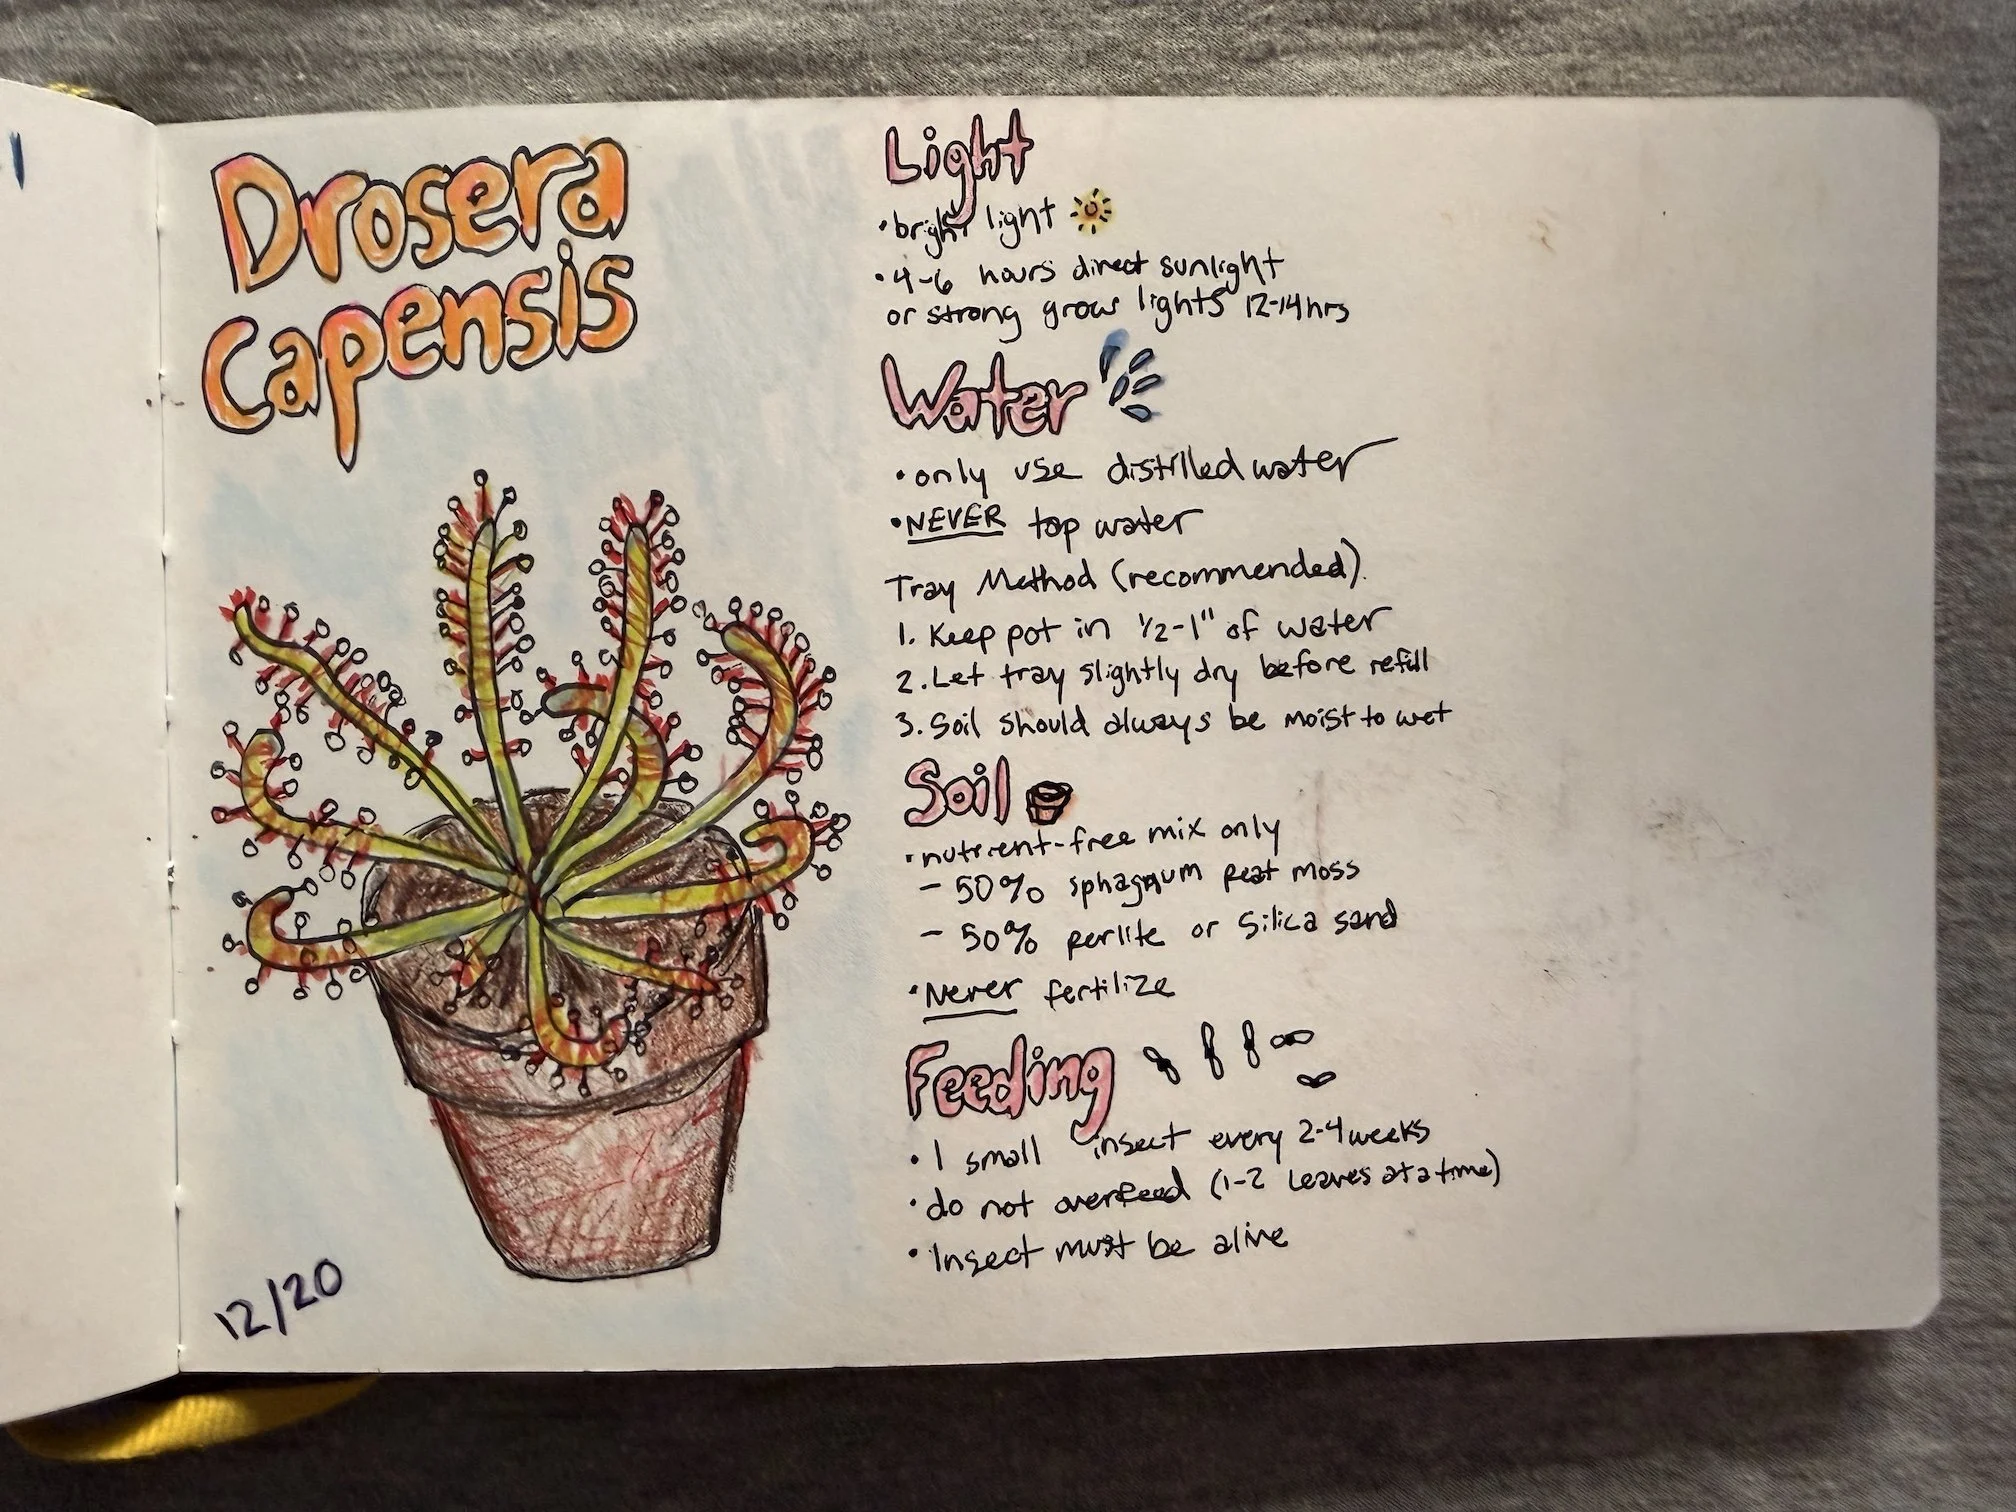 Drosera
Capensis
12/20
Light
• bright light
• 4-6 hours direct sunlight
or strong grow lights 12-14hrs
Water
• only use distilled water
• NEVER top water
Tray Method (recommended).
1. Keep pot in 1/2-1" of water
2. Let tray slightly dry before refill
3. Soil should always be moist to wet
Soil
• nutrient-free mix only
- 50% sphagnum peat moss
- 50% perlite or silica sand
• Never fertilize
Feeding
• 1 small insect every 2-4 weeks
• do not overfeed (1-2 leaves at a time)
• Insect must be alive